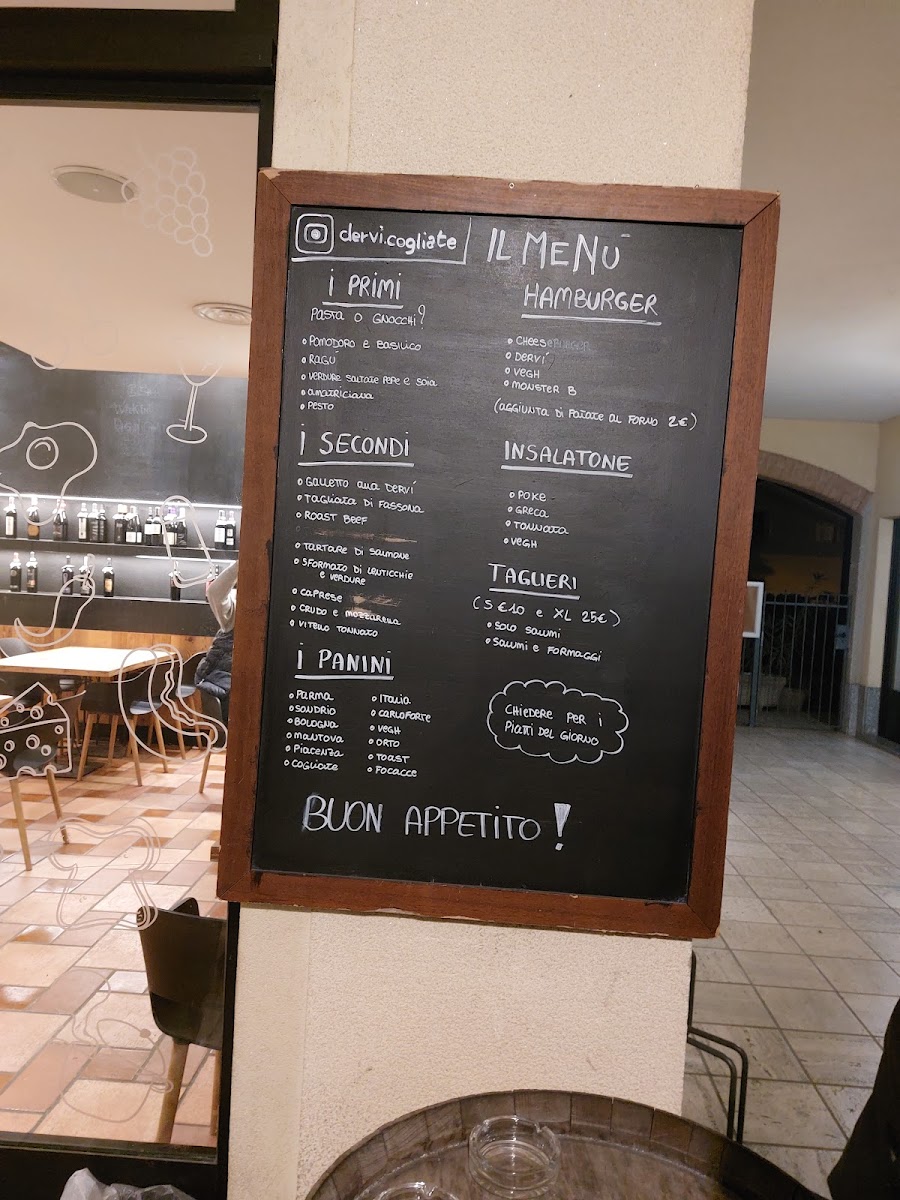 dervi.cogliate
IL MENÙ
I PRIMI
PASTA O GNOCCHI?
POMODORO E BASILICO
RAGÙ
VERDURE SALTATE PEPE E SOIA
AMATRICIANA
PESTO
I SECONDI
GALLETTO ALLA DERVÌ
TAGLIATA DI FASSONA
ROAST BEEF
TARTARE DI SALMONE
SFORMATO DI LENTICCHIE
E VERDURE
CAPRESE
CRUDO E MOZZARELLA
VITELLO TONNATO
I PANINI
PARMA
SONDRIO
BOLOGNA
MANTOVA
PIACENZA
COGLIATE
ITALIA
CARLOFORTE
VEGH
ORTO
TOAST
FOCACCE
HAMBURGER
CHEESEBURGER
DERVÌ
VEGH
MONSTER B
(AGGIUNTA DI PATATE AL FORNO 2€)
INSALATONE
POKE
GRECA
TONNATA
VEGH
TAGLIERI
(S €10 E XL 25€)
SOLO SALUMI
SALUMI E FORMAGGI
CHIEDERE PER I
PIATTI DEL GIORNO
BUON APPETITO!